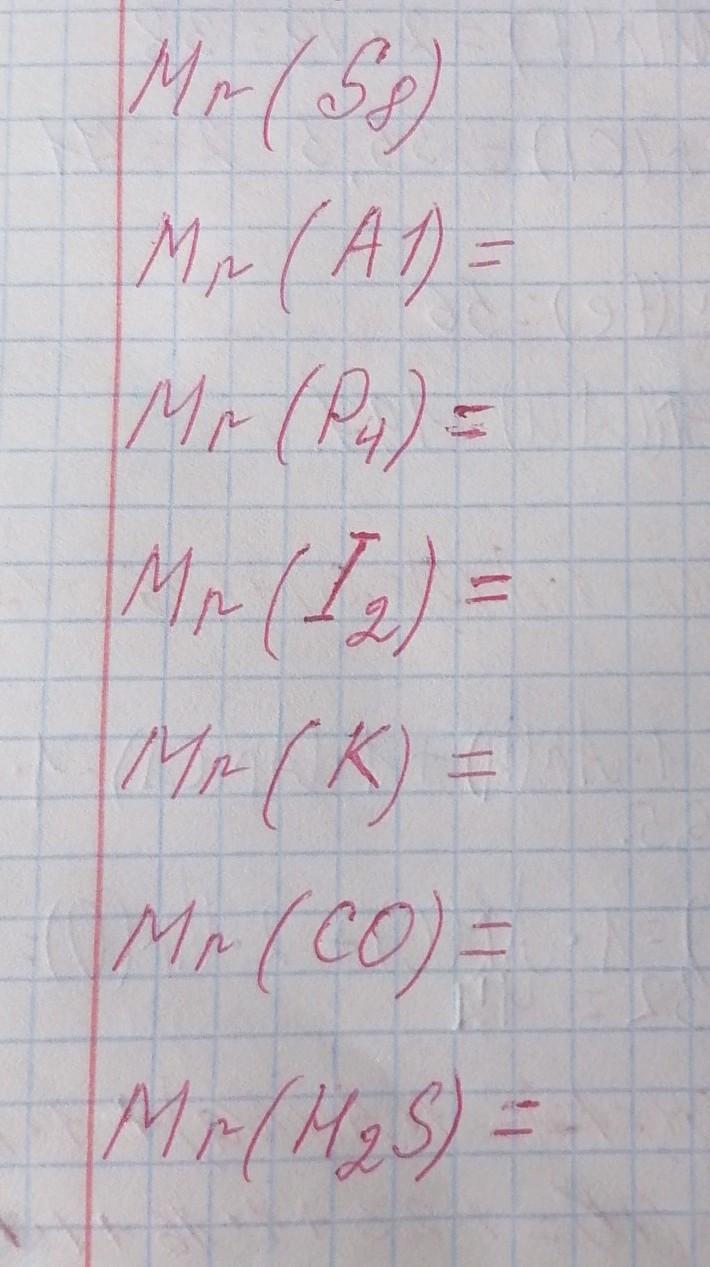 Mr(S8)
Mr(A1)=
Mr(P4)=
Mr(I2)=
Mr(K)=
Mr(CO)=
Mr(H2S)=